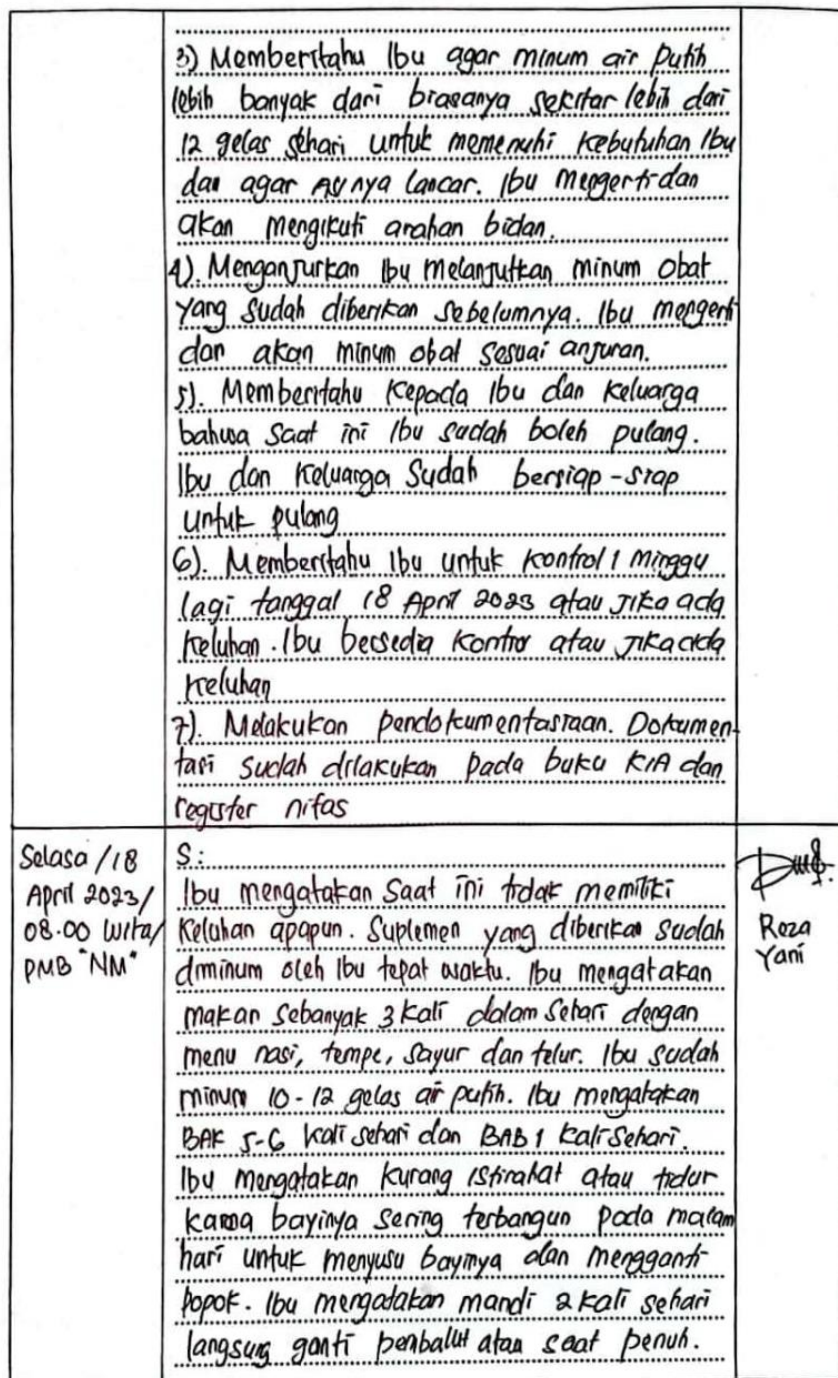 3) Memberitahu Ibu agar minum air putih
lebih banyak dari biasanya sekitar lebih dari
12 gelas sehari untuk memenuhi kebutuhan Ibu
dan agar ASInya lancar. Ibu mengerti dan
akan mengikuti arahan bidan.
4). Menganjurkan Ibu melanjutkan minum obat
yang sudah diberikan sebelumnya. Ibu mengerti
dan akan minum obat sesuai anjuran.
5). Memberitahu kepada Ibu dan keluarga
bahwa saat ini Ibu sudah boleh pulang.
Ibu dan keluarga sudah bersiap-siap
untuk pulang
6). Memberitahu Ibu untuk kontrol 1 minggu
lagi tanggal 18 April 2023 atau jika ada
keluhan. Ibu bersedia kontrol atau jika ada
keluhan
7). Melakukan pendokumentasiaan. Dokumen-
tasi sudah dilakukan pada buku KIA dan
register nifas
Selasa /18
April 2023/
08.00 Wita/
PMB "NM"
S:
Ibu mengatakan saat ini tidak memiliki
keluhan apapun. Suplemen yang diberikan sudah
diminum oleh Ibu tepat waktu. Ibu mengatakan
makan sebanyak 3 kali dalam sehari dengan
menu nasi, tempe, sayur dan telur. Ibu sudah
minum 10-12 gelas air putih. Ibu mengatakan
BAK 5-6 kali sehari dan BAB 1 kali sehari.
Ibu mengatakan kurang istirahat atau tidur
karna bayinya sering terbangun pada malam
hari untuk menyusu bayinya dan mengganti
popok. Ibu mengatakan mandi 2 kali sehari
langsung ganti pembalut atau saat penuh.
Roza
Yani